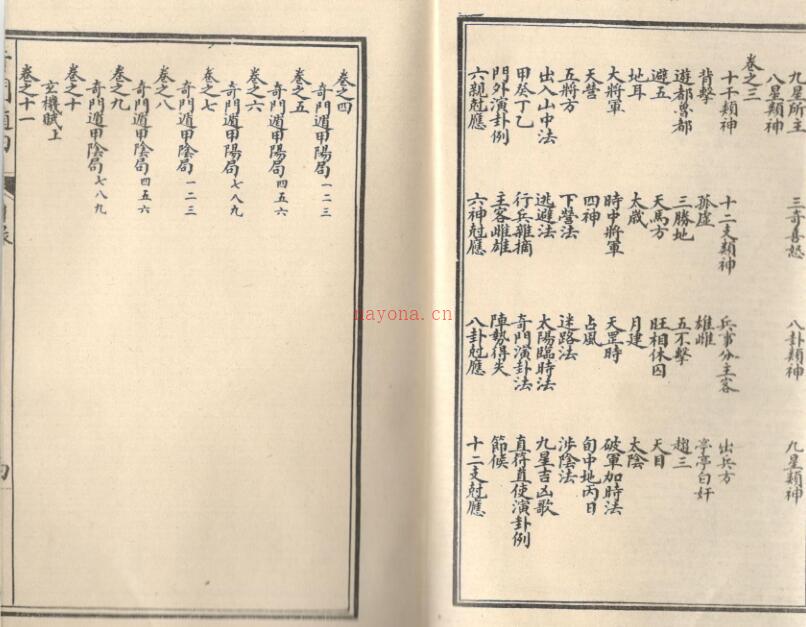 九星所主 三奇喜怒 八卦類神 九星類神
八星類神
卷之三
十干類神 十二支類神 兵事分主客 出兵方
背擊 孤虛 雄雌 亭亭白奸
遊都魯都 三勝地 五不擊 趨三
避五 天馬方 旺相休囚 天目
地耳 太歲 月建 太陰
大將軍 時中將軍 天罡時 破軍加時法
天營 四神 占風 旬中地丙日
五將方 下營法 迷路法 涉陰法
出入山中法 逃避法 太陽臨時法 九星吉凶歌
甲癸丁乙 行兵雜摘 奇門演卦法 直符直使演卦例
門外演卦例 主客雌雄 陣勢得失 節候
六親尅應 六神尅應 八卦尅應 十二支尅應
卷之四
奇門遁甲陽局一二三
卷之五
奇門遁甲陽局四五六
卷之六
奇門遁甲陽局七八九
卷之七
奇門遁甲陰局一二三
卷之八
奇門遁甲陰局四五六
卷之九
奇門遁甲陰局七八九
卷之十
玄機賦上
卷之十一
nayona.cn